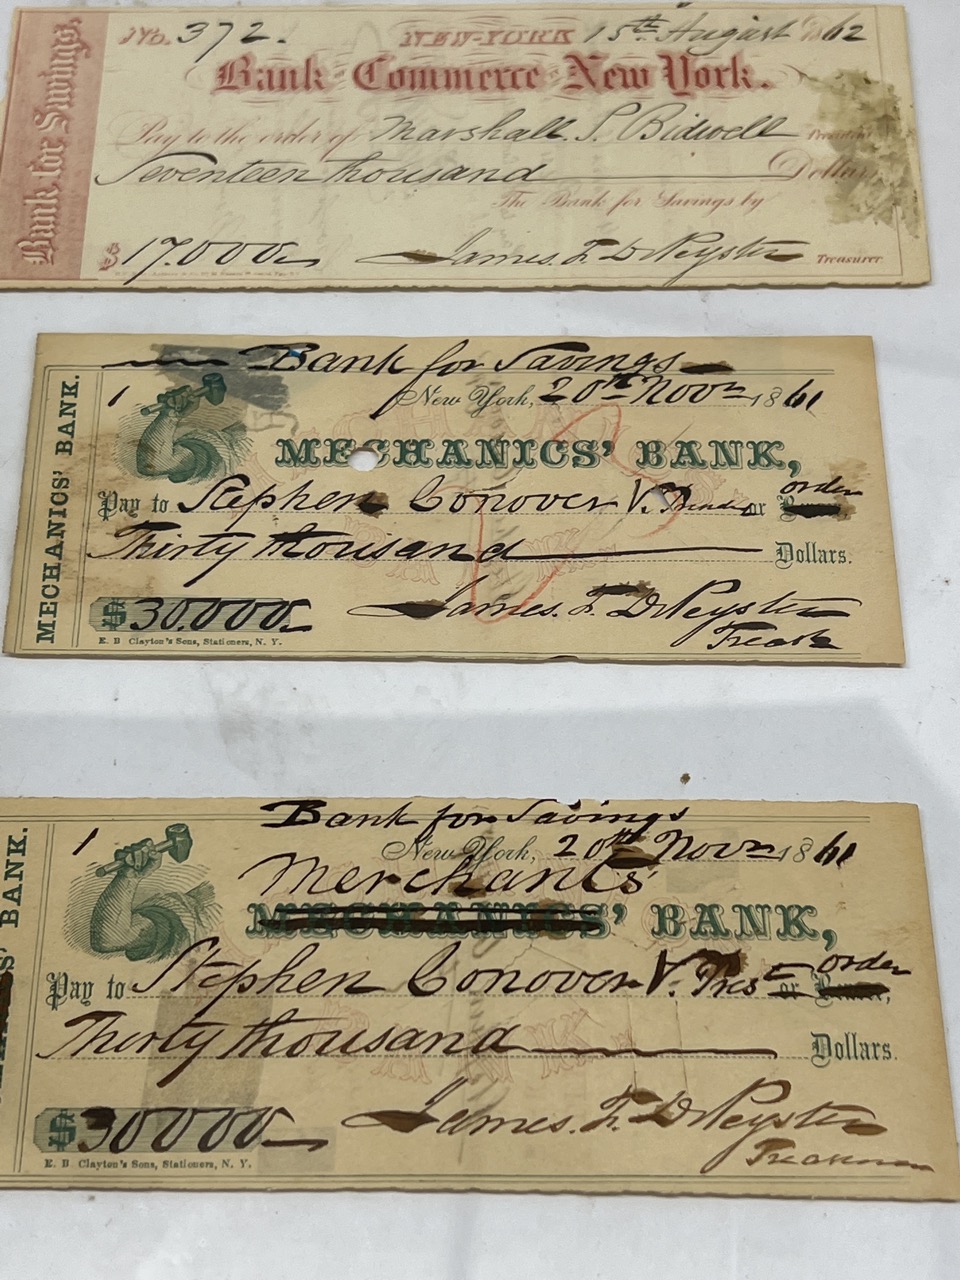 Bank for Savings.
No. 372. NEW-YORK 15th August 1862
Bank of Commerce in New York.
Pay to the order of Marshall. S. Bidwell President
Seventeen thousand Dollars
The Bank for Savings by
$ 17.000 James. F. DePeyster Treasurer
MECHANICS' BANK.
Bank for Savings
1 New York, 20th Novr 1861
MECHANICS' BANK,
Pay to Stephen Conover V. or order
Thirty thousand Dollars.
$ 30.000 James. F. DePeyster
E. B Clayton's Sons, Stationers, N. Y. Treasr
BANK.
Bank for Savings
1 New York, 20th Novr 1861
Merchants'
MECHANICS' BANK,
Pay to Stephen Conover V. Pres or order
Thirty thousand Dollars.
$ 30000 James. F. DePeyster
E. B Clayton's Sons, Stationers, N. Y. Treasurer